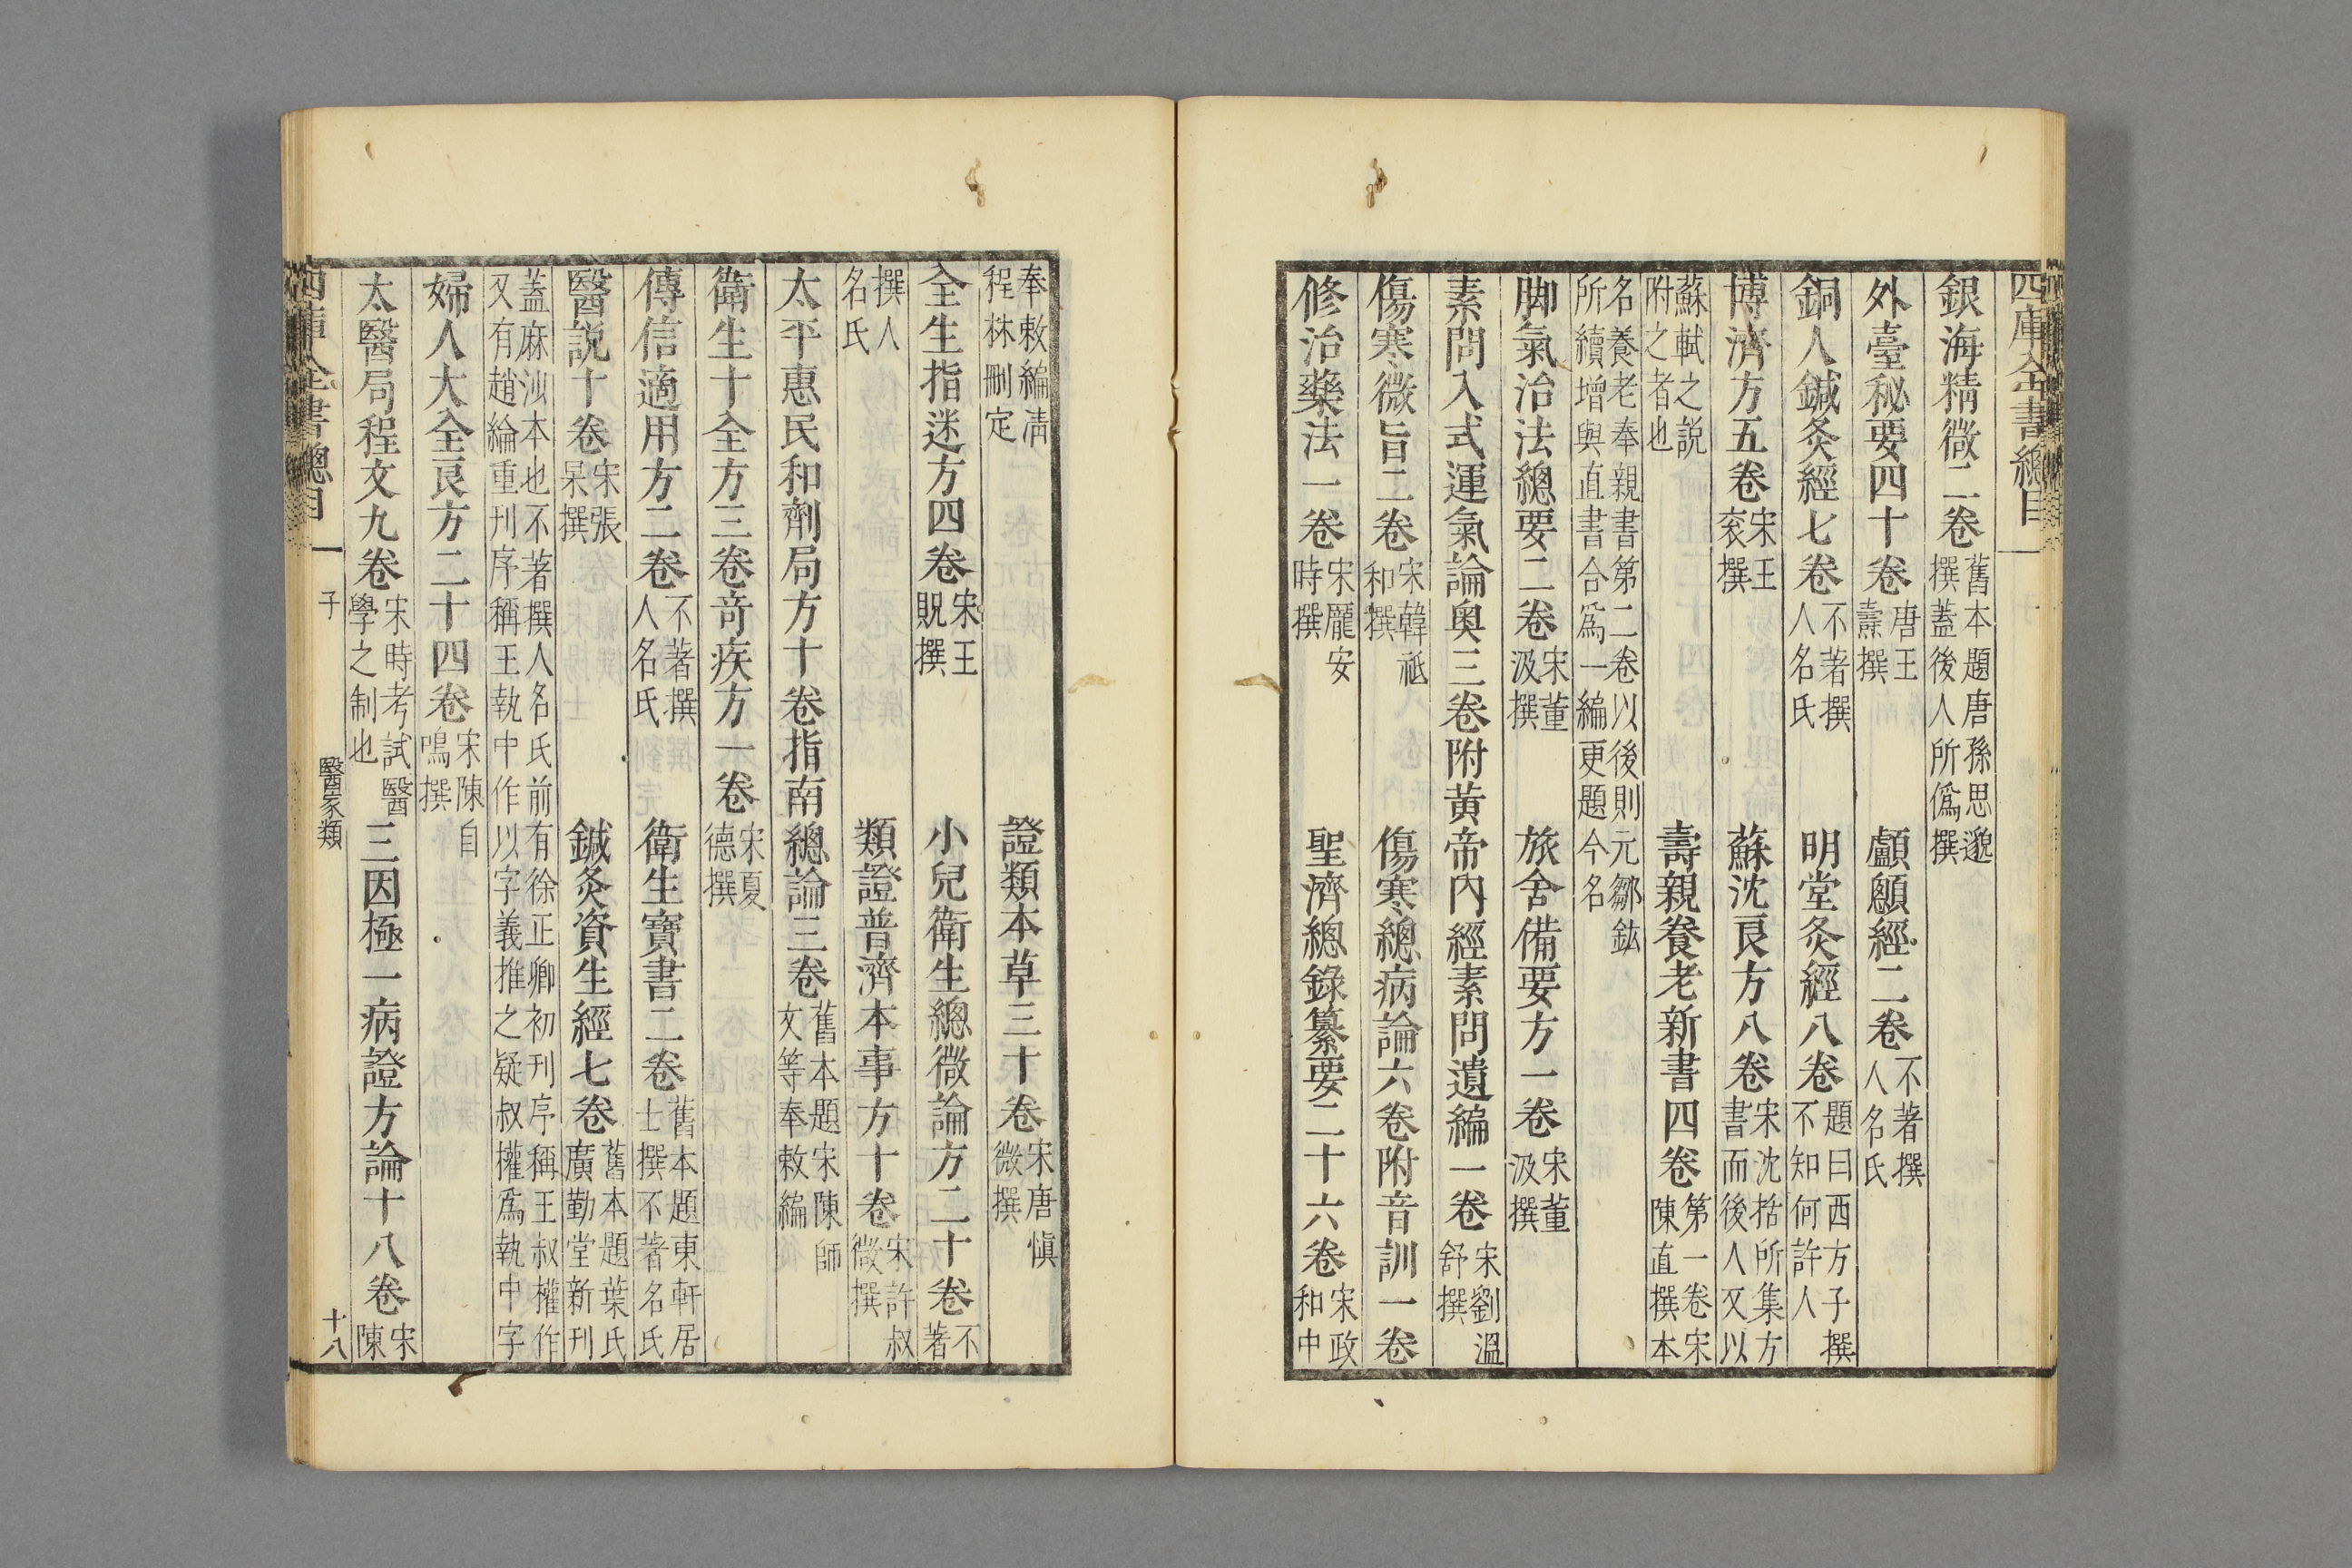 四庫全書總目
銀海精微二卷舊本題唐孫思邈撰蓋後人所僞撰
外臺秘要四十卷唐王燾撰 顱顖經二卷不著撰人名氏
銅人鍼灸經七卷不著撰人名氏 明堂灸經八卷題曰西方子撰不知何許人
博濟方五卷宋王袞撰 蘇沈良方八卷宋沈括所集方書而後人又以
蘇軾之說附之者也 壽親養老新書四卷第一卷宋陳直撰本
名養老奉親書第二卷以後則元鄒鉉所續增與直書合爲一編更題今名
脚氣治法總要二卷宋董汲撰 旅舍備要方一卷宋董汲撰
素問入式運氣論奥三卷附黄帝內經素問遺編一卷宋劉溫舒撰
傷寒微旨二卷宋韓祗和撰 傷寒總病論六卷附音訓一卷
修治藥法一卷宋龐安時撰 聖濟總錄纂要二十六卷宋政和中
奉敕編淸程林刪定 證類本草三十卷宋唐愼微撰
全生指迷方四卷宋王貺撰 小兒衛生總微論方二十卷不著
撰人名氏 類證普濟本事方十卷宋許叔微撰
太平惠民和劑局方十卷指南總論三卷舊本題宋陳師文等奉敕編
衛生十全方三卷奇疾方一卷宋夏德撰
傳信適用方二卷不著撰人名氏 衛生寶書二卷舊本題東軒居士撰不著名氏
醫說十卷宋張杲撰 鍼灸資生經七卷舊本題葉氏廣勤堂新刊
蓋麻沙本也不著撰人名氏前有徐正卿初刊序稱王叔權作又有趙綸重刊序稱王執中作以字義推之疑叔權爲執中字
婦人大全良方二十四卷宋陳自鳴撰
太醫局程文九卷宋時考試醫學之制也 三因極一病證方論十八卷宋陳
四庫全書總目 子 醫家類 十八